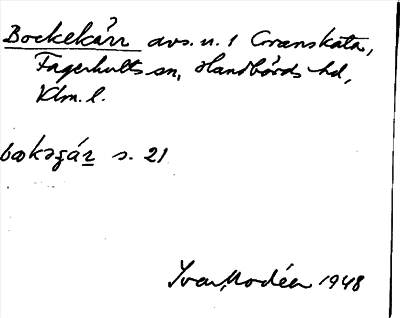 Bockekärr avs. u. 1 Granskata,
Fagerhults sn, Handbörds hd,
Klm. l.
s. 21
Ivar Modéer 1948